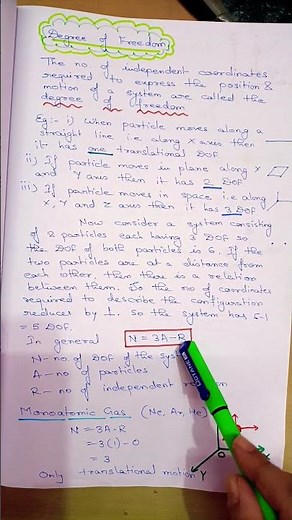 Degree of Freedom
The no of independent coordinates
required to express the position &
motion of a system are called the
degree of freedom
Eg:- i) When particle moves along a
straight line i.e along X axis then
it has one translational DOF
ii) If particle moves in plane along X
and Y axis then it has 2 DOF
iii) If particle moves in space i.e along
X, Y and Z axis then it has 3 DOF
Now consider a system consisting
of 2 particles each having 3 DOF so
the DOF of both particles is 6. If the
two particles are at a distance from
each other, then there is a relation
between them. So the no of coordinates
required to describe the configuration
reduces by 1. So the system has 6-1
= 5 DOF.
In general N = 3A-R
N- no of DOF of the
A- no of particles
R- no of independent
Monoatomic Gas (Ne, Ar, He)
N = 3A-R
= 3(1) - 0
= 3
Only translational motion
Y